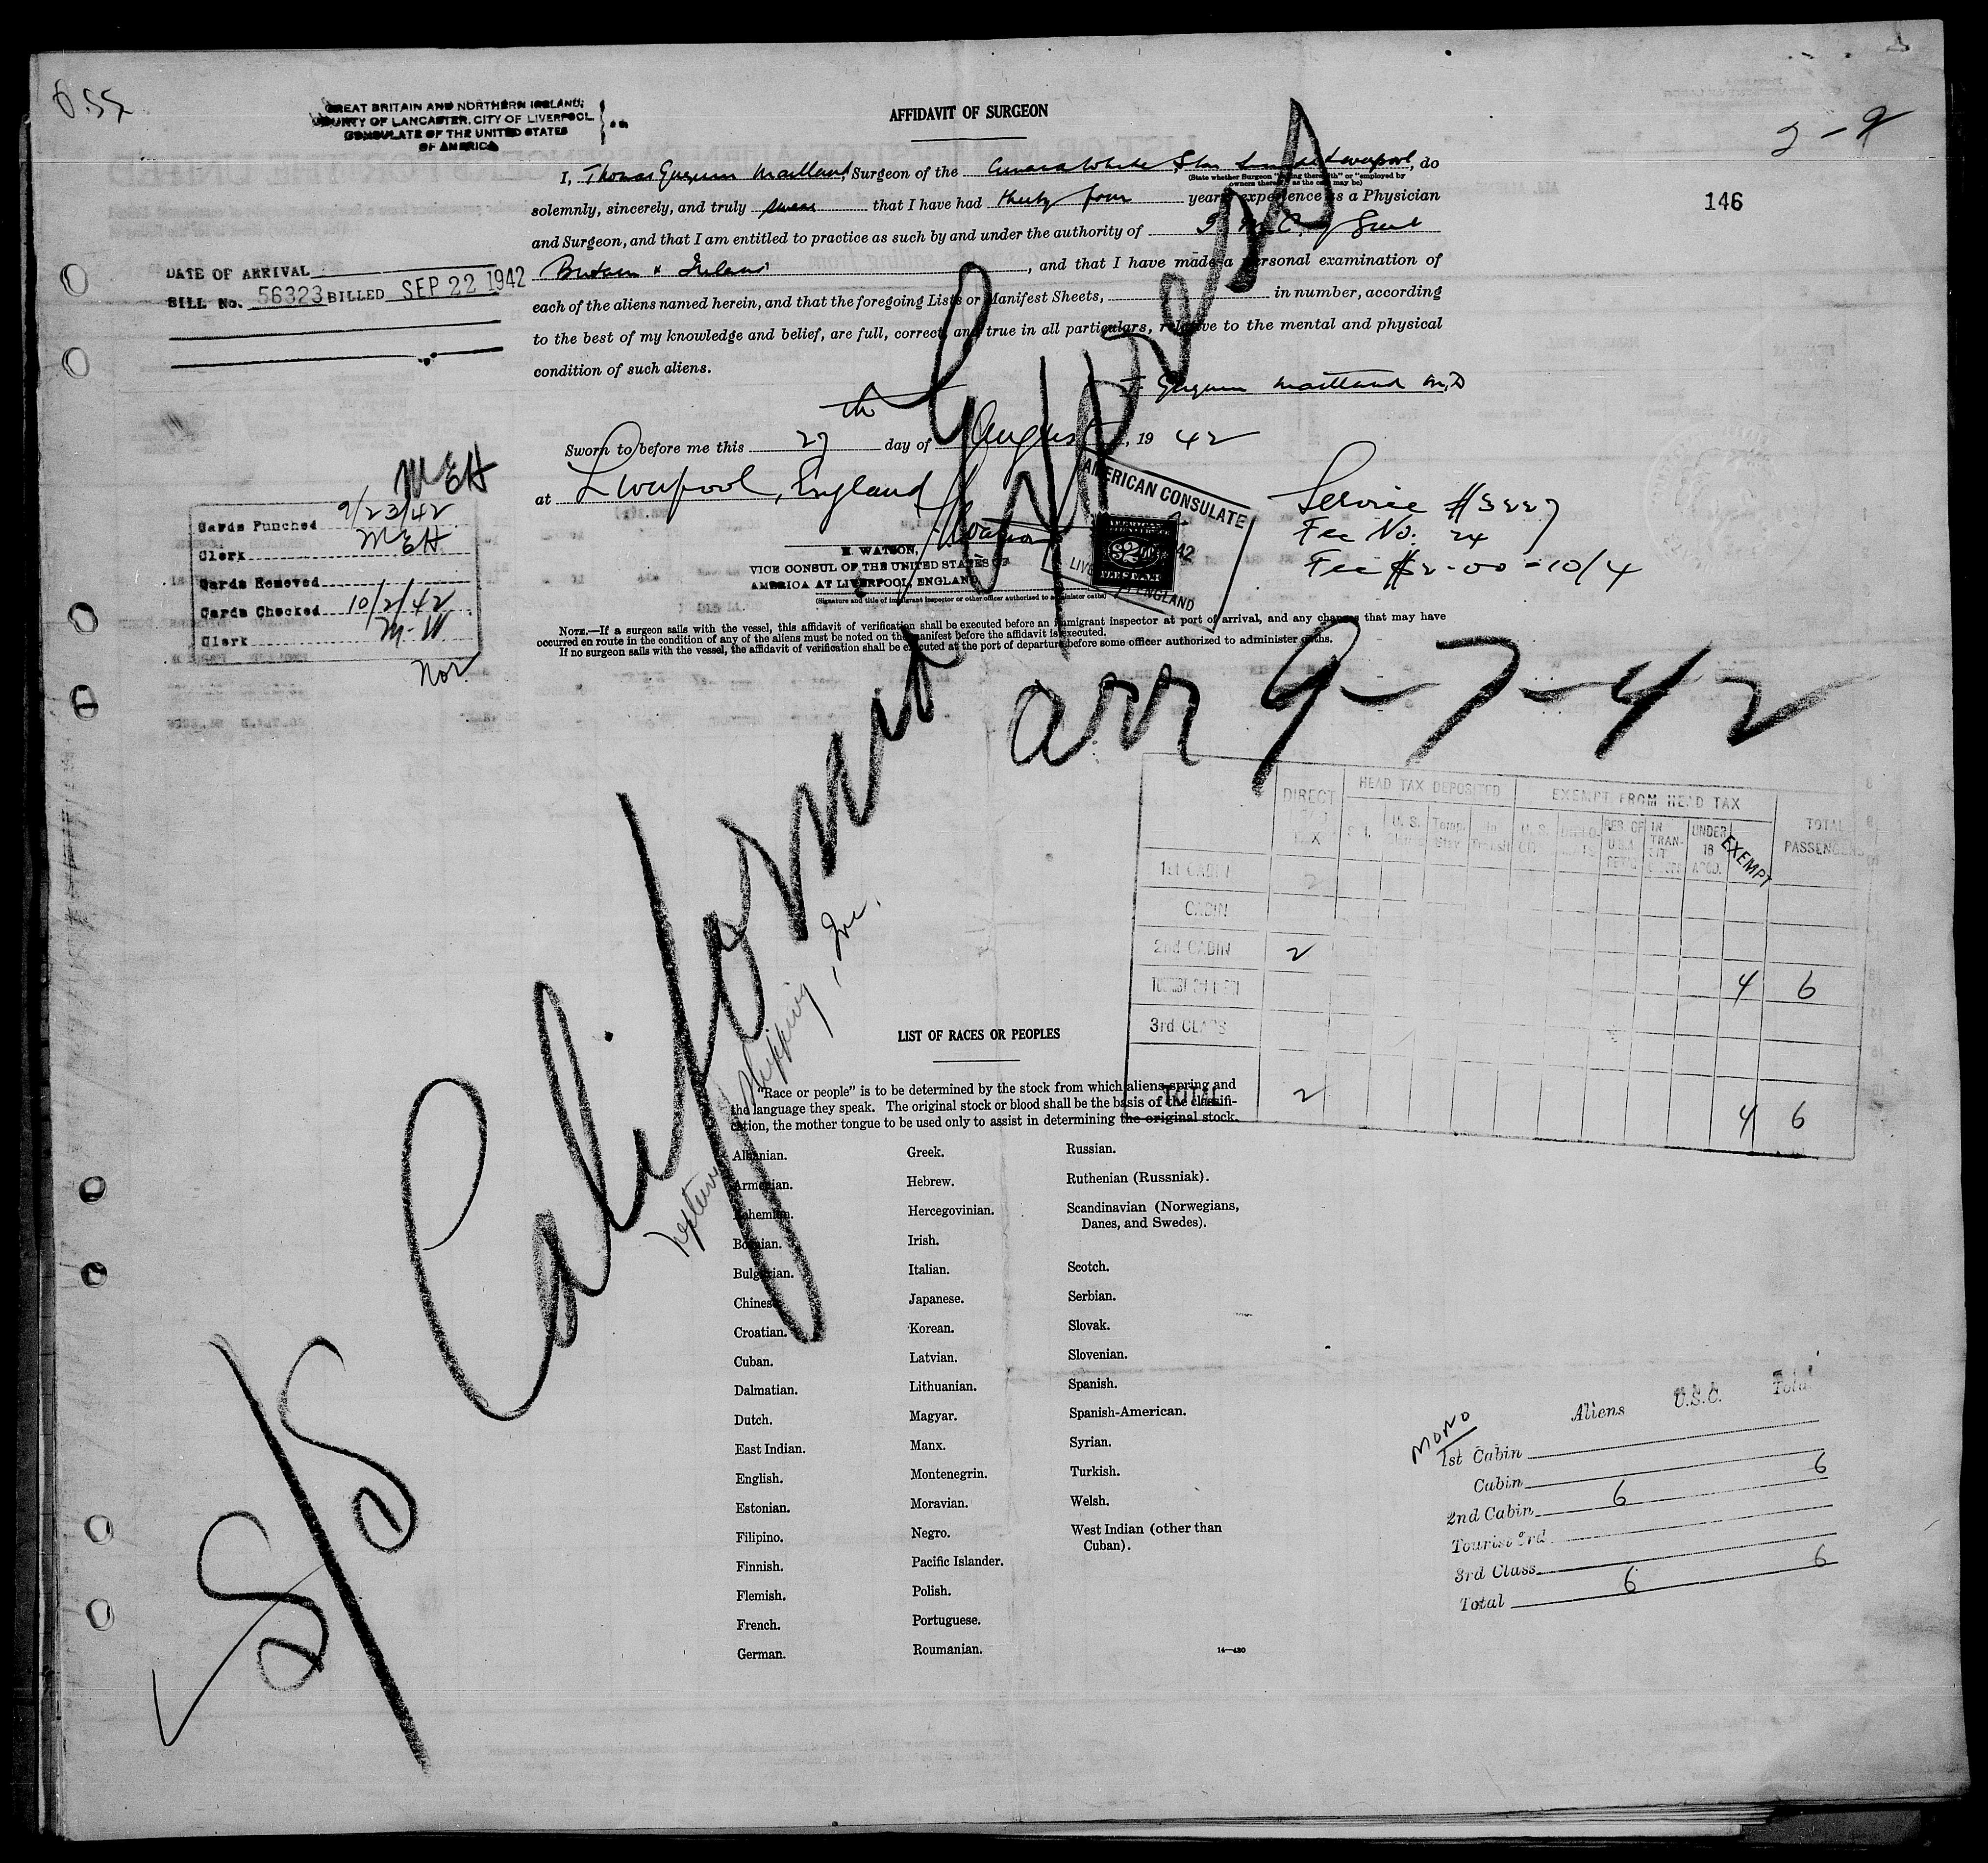 AFFIDAVIT OF SURGEON
GREAT BRITAIN AND NORTHERN IRELAND;
COUNTY OF LANCASTER, CITY OF LIVERPOOL
CONSULATE OF THE UNITED STATES
OF AMERICA
2-9
146
I, Thomas Maitland, Surgeon of the Cunard White Star Liverpool, do
(State whether Surgeon "sailing therewith" or "employed by
owners thereof," as the case may be)
solemnly, sincerely, and truly swear that I have had thirty four years' experience as a Physician
and Surgeon, and that I am entitled to practice as such by and under the authority of G. M. C. of Great
Britain & Ireland, and that I have made a personal examination of
each of the aliens named herein, and that the foregoing Lists or Manifest Sheets, in number, according
to the best of my knowledge and belief, are full, correct, and true in all particulars, relative to the mental and physical
condition of such aliens.
Maitland M.D
Sworn to before me this 27th day of August, 1942
at Liverpool, England
H Watson
E. WATSON,
VICE CONSUL OF THE UNITED STATES OF
AMERICA AT LIVERPOOL, ENGLAND
(Signature and title of immigrant inspector or other officer authorized to administer oaths)
AMERICAN CONSULATE
$2.00
42
LIVERPOOL ENGLAND
Service #3227
Fee No. 24
Fee $2.00 = 10/4
NOTE.—If a surgeon sails with the vessel, this affidavit of verification shall be executed before an immigrant inspector at port of arrival, and any changes that may have
occurred en route in the condition of any of the aliens must be noted on the manifest before the affidavit is executed.
If no surgeon sails with the vessel, the affidavit of verification shall be executed at the port of departure before some officer authorized to administer oaths.
DATE OF ARRIVAL
BILL No. 56323 BILLED SEP 22 1942
MEH
Cards Punched 9/23/42
Clerk MEH
Cards Removed
Cards Checked 10/2/42
Clerk M-W
Nor
S/S California Express
arr 9-7-42
Western Shipping, Inc.
DIRECT TAX
HEAD TAX DEPOSITED
EXEMPT FROM HEAD TAX
TOTAL PASSENGERS
U. S.
Temp. Stay
In Transit
IN TRANSIT
UNDER 16
EXEMPT
1st CABIN 2
CABIN
2nd CABIN 2
TOURIST 4 6
3rd CLASS
TOTAL 2 4 6
LIST OF RACES OR PEOPLES
"Race or people" is to be determined by the stock from which aliens spring and
the language they speak. The original stock or blood shall be the basis of the classifi-
cation, the mother tongue to be used only to assist in determining the original stock.
Albanian.
Armenian.
Bohemian.
Bosnian.
Bulgarian.
Chinese.
Croatian.
Cuban.
Dalmatian.
Dutch.
East Indian.
English.
Estonian.
Filipino.
Finnish.
Flemish.
French.
German.
Greek.
Hebrew.
Hercegovinian.
Irish.
Italian.
Japanese.
Korean.
Latvian.
Lithuanian.
Magyar.
Manx.
Montenegrin.
Moravian.
Negro.
Pacific Islander.
Polish.
Portuguese.
Roumanian.
Russian.
Ruthenian (Russniak).
Scandinavian (Norwegians,
Danes, and Swedes).
Scotch.
Serbian.
Slovak.
Slovenian.
Spanish.
Spanish-American.
Syrian.
Turkish.
Welsh.
West Indian (other than
Cuban).
14—430
MONO
Aliens U.S.C. Total
1st Cabin
Cabin 6 6
2nd Cabin
Tourist 3rd
3rd Class
Total 6 6